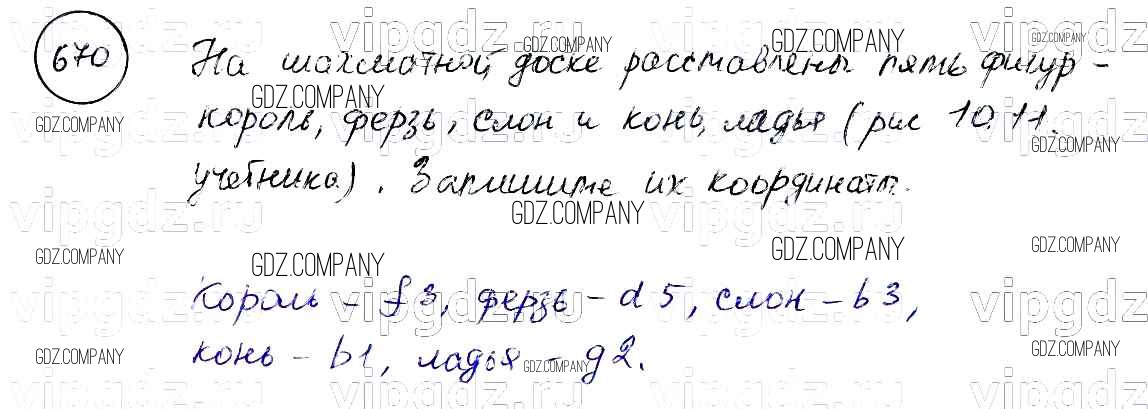 670
На шахматной доске расставлены пять фигур -
король, ферзь, слон и конь, ладья (рис 10.11.
учебника). Запишите их координаты.
Король - f3, ферзь - d5, слон - b3,
конь - b1, ладья - g2.
GDZ.COMPANY
vipgdz.ru